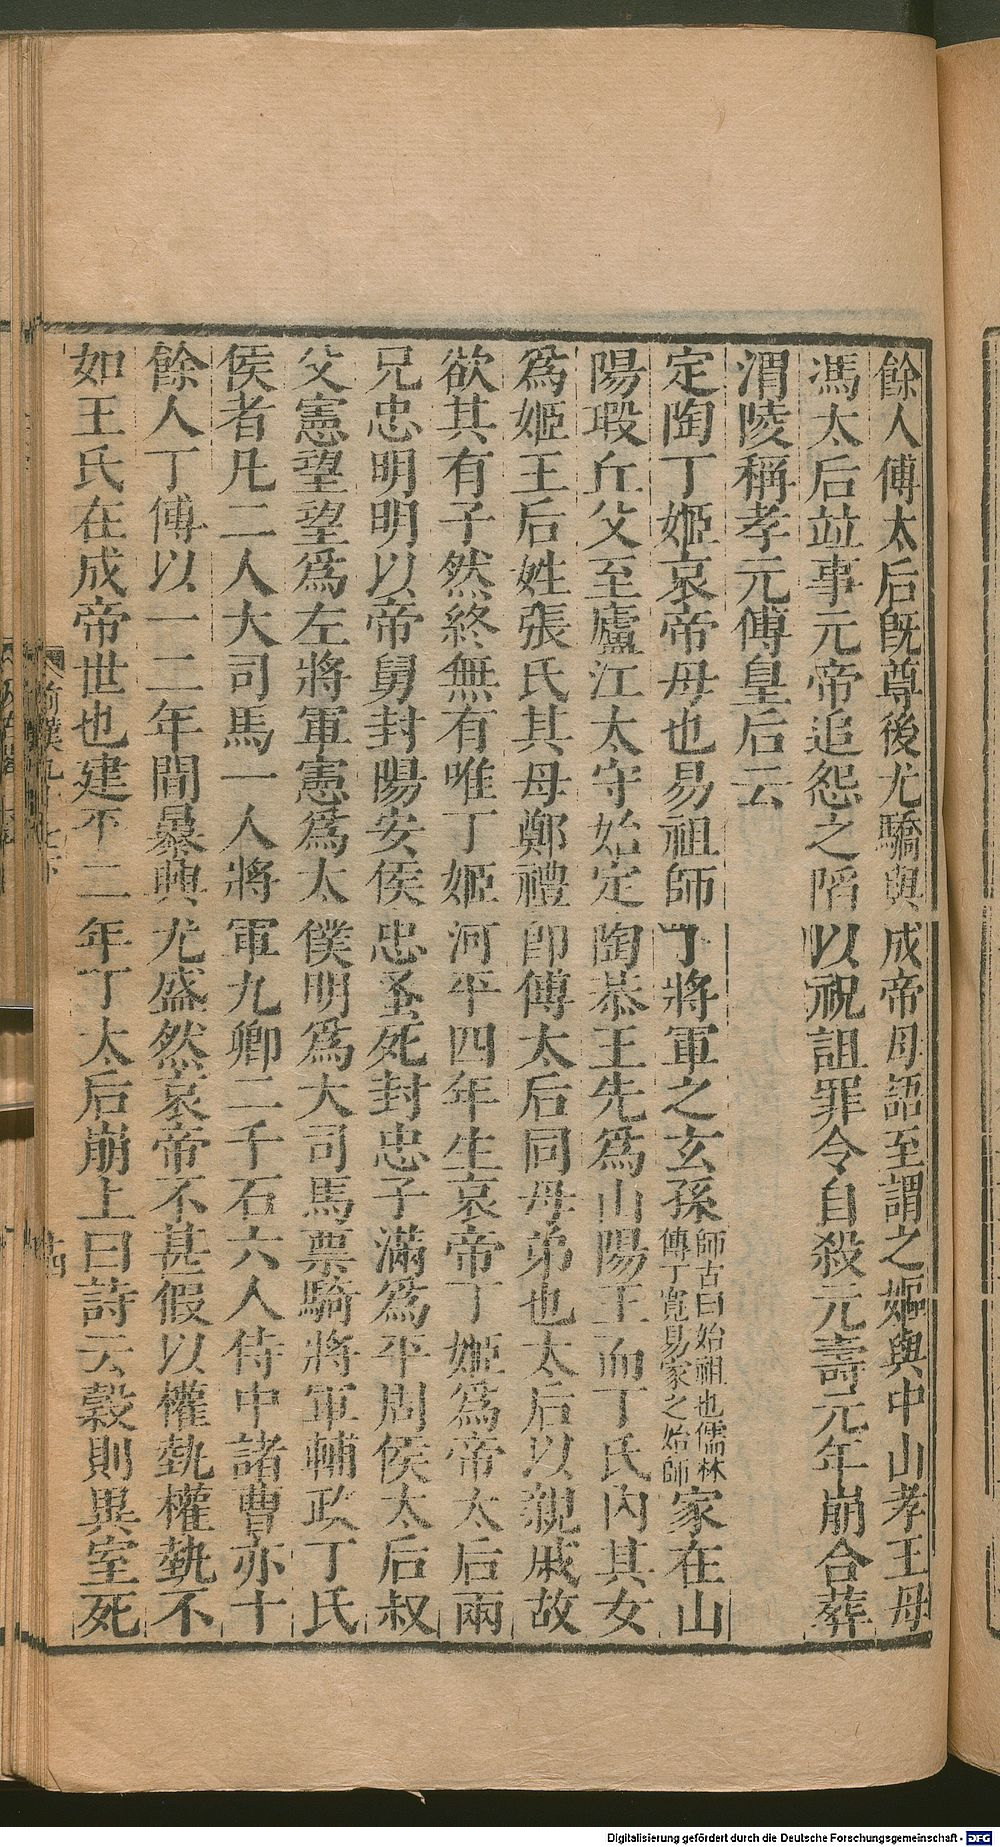 餘人傅太后旣尊後尤驕與成帝母語至謂之嫗與中山孝王母
馮太后竝事元帝追怨之陷以祝詛罪令自殺元壽元年崩合葬
渭陵稱孝元傅皇后云
定陶丁姬哀帝母也易祖師丁將軍之玄孫師古曰始祖也儒林傳丁寬易家之始師家在山
陽瑕丘父至廬江太守始定陶恭王先爲山陽王而丁氏內其女
爲姬王后姓張氏其母鄭禮卽傅太后同母弟也太后以親戚故
欲其有子然終無有唯丁姬河平四年生哀帝丁姬爲帝太后兩
兄忠明明以帝舅封陽安侯忠蚤死封忠子滿爲平周侯太后叔
父憲望望爲左將軍憲爲太僕明爲大司馬票騎將軍輔政丁氏
侯者凡二人大司馬一人將軍九卿二千石六人侍中諸曹亦十
餘人丁傅以一二年間暴興尤盛然哀帝不甚假以權埶權埶不
如王氏在成帝世也建平二年丁太后崩上曰詩云穀則異室死
前漢九十七下
Digitalisierung gefördert durch die Deutsche Forschungsgemeinschaft - DFG